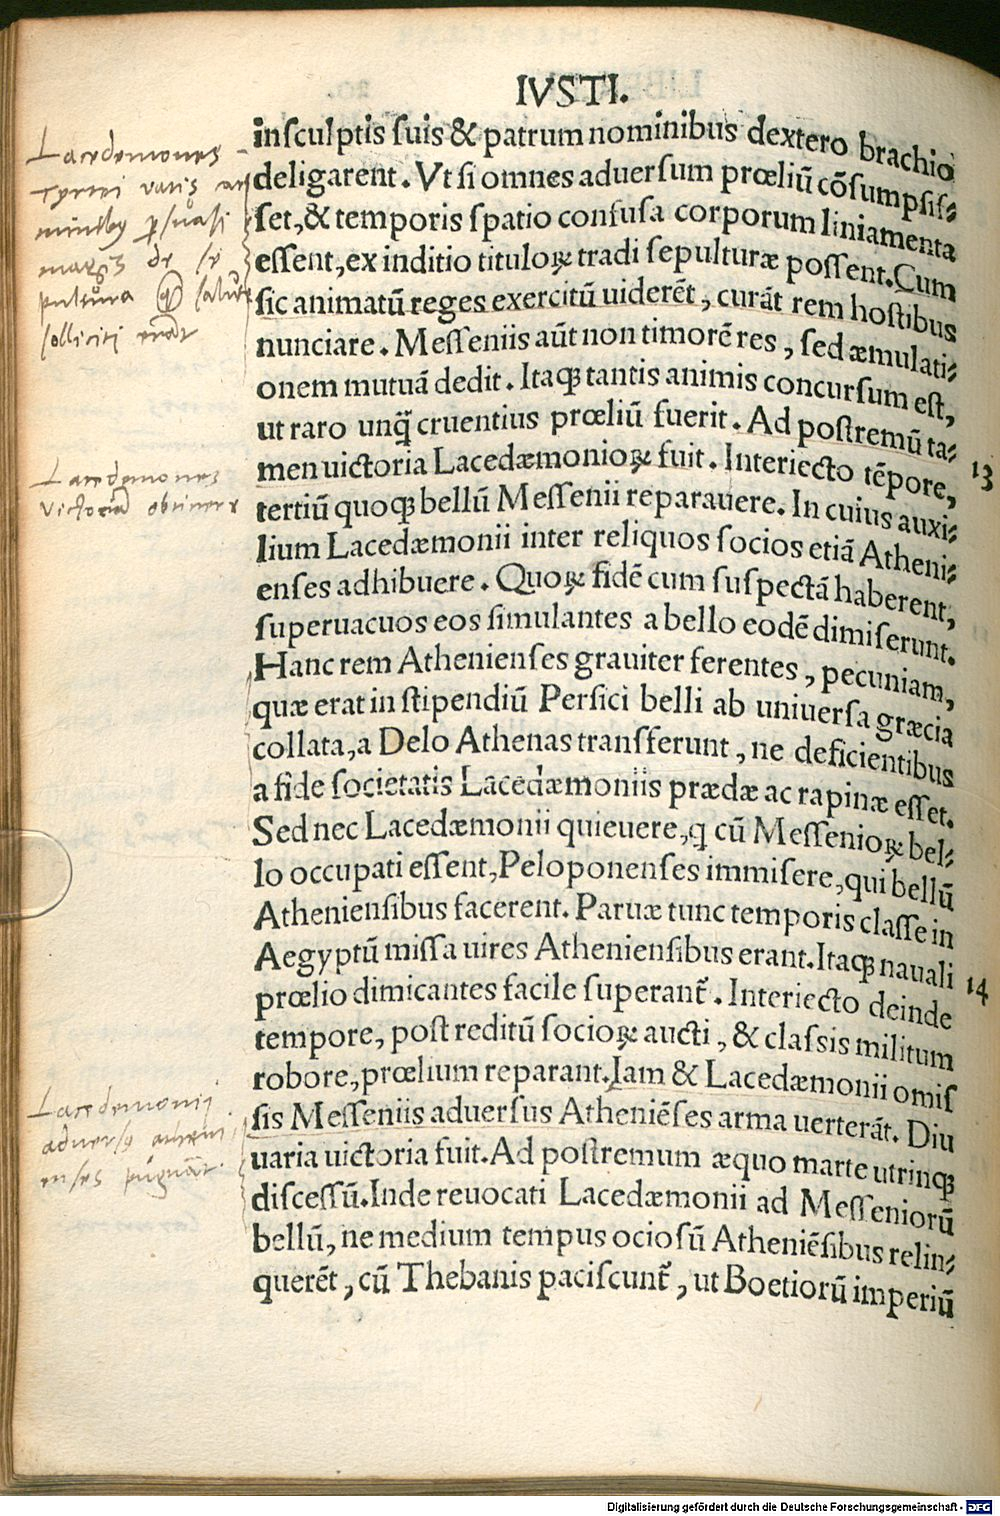 IVSTI.
insculptis suis & patrum nominibus dextero brachio
deligarent. Vt si omnes aduersum prœliũ cõsumpsis-
set, & temporis spatio confusa corporum liniamenta
essent, ex inditio tituloꝝ tradi sepulturæ possent. Cum
sic animatũ reges exercitũ uiderẽt, curãt rem hostibus
nunciare. Messeniis aũt non timorẽ res, sed æmulati-
onem mutuã dedit. Itaqꝫ tantis animis concursum est,
ut raro unq̃ cruentius prœliũ fuerit. Ad postremũ ta-
men uictoria Lacedæmonioꝝ fuit. Interiecto tẽpore,
13
tertiũ quoqꝫ bellũ Messenii reparauere. In cuius auxi-
lium Lacedæmonii inter reliquos socios etiã Atheni-
enses adhibuere. Quoꝝ fidẽ cum suspectã haberent,
superuacuos eos simulantes a bello eodẽ dimiserunt.
Hanc rem Athenienses grauiter ferentes, pecuniam,
quæ erat in stipendiũ Persici belli ab uniuersa græcia
collata, a Delo Athenas transferunt, ne deficientibus
a fide societatis Lacedæmoniis prædæ ac rapinæ esset.
Sed nec Lacedæmonii quieuere, q cũ Messenioꝝ bel-
lo occupati essent, Peloponenses immisere, qui bellũ
Atheniensibus facerent. Paruæ tunc temporis classe in
Aegyptũ missa uires Atheniensibus erant. Itaqꝫ nauali
14
prœlio dimicantes facile superant̃. Interiecto deinde
tempore, post reditũ socioꝝ aucti, & classis militum
robore, prœlium reparant. Iam & Lacedæmonii omis
sis Messeniis aduersus Atheniẽses arma uerterãt. Diu
uaria uictoria fuit. Ad postremum æquo marte utrinqꝫ
discessũ. Inde reuocati Lacedæmonii ad Messeniorũ
bellũ, ne medium tempus ociosũ Atheniẽsibus relin-
querẽt, cũ Thebanis paciscunt̃, ut Boetiorũ imperiũ
Lacedemones
Tyrtei vatis
magis de se
pultura salute
solliciti erãt
Lacedemones
victoriã obtinere
Lacedemonii
adversꝰ atheni
enses pugnãt
Digitalisierung gefördert durch die Deutsche Forschungsgemeinschaft - DFG